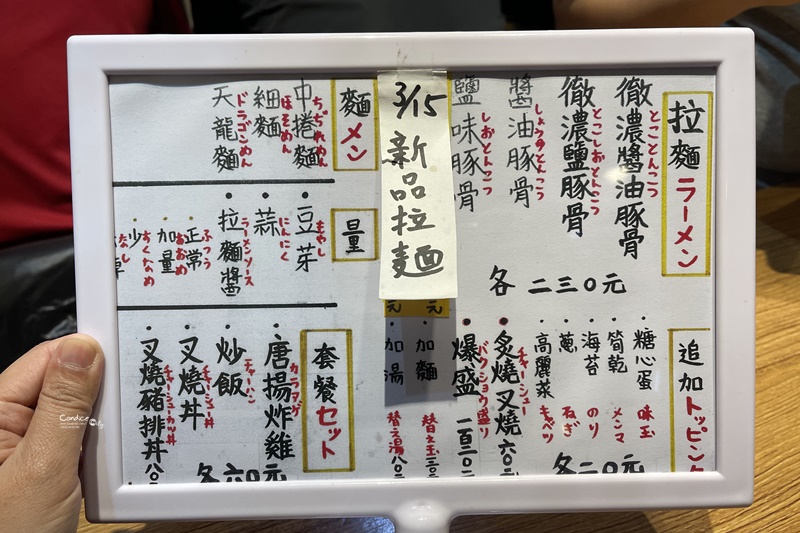 拉麵 ラーメン
徹濃醬油豚骨 とことんこつ
徹濃鹽豚骨 とこしおとんこつ
醬油豚骨 しょうゆとんこつ
鹽味豚骨 しおとんこつ
各 二三0元
3/15 新品拉麵
麵 メン
中捲麵 ちぢれめん
細麵 ほそめん
天龍麵 ドラゴンめん
量
・豆芽 もやし
・蒜 にんにく
・拉麵醬 ラーメンソース
・正常 ふつう
・加量 おおめ
・少 すくなめ
なし
追加 トッピング
・糖心蛋 味玉
・筍乾 メンマ
・海苔 のり
・蔥 ねぎ
・高麗菜 キャベツ
各二0元
・炙燒叉燒 六0元 チャーシュー
・爆盛 一百二0元 バクショウ盛り
加麵 替え玉三0元
加湯 替え湯八0元
套餐 セット
・唐揚炸雞 カラアゲ
・炒飯 チャーハン
・叉燒丼 チャーシュー丼
・叉燒豬排丼 八0 チャーシューカツ丼
各六0元
Candice City